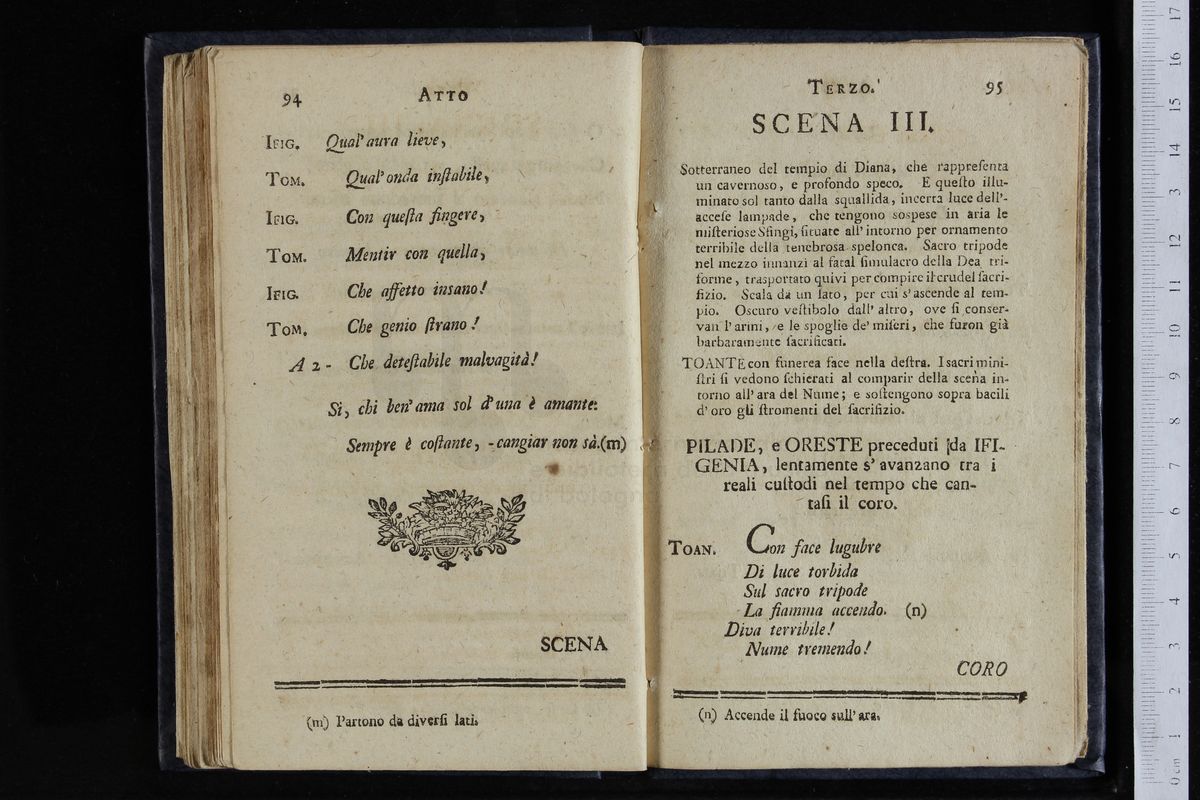 94 ATTO
IFIG. Qual'aura lieve,
TOM. Qual'onda inſtabile,
IFIG. Con queſta fingere,
TOM. Mentir con quella,
IFIG. Che affetto insano!
TOM. Che genio ſtrano!
A 2 - Che deteſtabile malvagità!
Si, chi ben'ama sol d'una è amante:
Sempre è coſtante, -cangiar non sà.(m)
SCENA
(m) Partono da diverſi lati.
TERZO. 95
SCENA III.
Sotterraneo del tempio di Diana, che rappreſenta
un cavernoso, e profondo speco. E queſto illu-
minato sol tanto dalla squallida, incerta luce dell'-
acceſe lampade, che tengono sospese in aria le
miſteriose Sfingi, ſituate all'intorno per ornamento
terribile della tenebrosa spelonca. Sacro tripode
nel mezzo innanzi al fatal ſimulacro della Dea tri-
forme, trasportato quivi per compire il crudel ſacri-
fizio. Scala da un lato, per cui s'ascende al tem-
pio. Oscuro veſtibolo dall'altro, ove ſi conser-
van l'armi, e le spoglie de' miſeri, che furon già
barbaramente ſacrificati.
TOANTE con funerea face nella deſtra. I sacri mini-
ſtri ſi vedono ſchierati al comparir della scena in-
torno all'ara del Nume; e soſtengono sopra bacili
d'oro gli ſtromenti del ſacrifizio.
PILADE, e ORESTE preceduti da IFI-
GENIA, lentamente s'avanzano tra i
reali cuſtodi nel tempo che can-
taſi il coro.
TOAN. Con face lugubre
Di luce torbida
Sul sacro tripode
La fiamma accendo. (n)
Diva terribile!
Nume tremendo!
CORO
(n) Accende il fuoco sull'ara.
0 cm 1 2 3 4 5 6 7 8 9 10 11 12 13 14 15 16 17